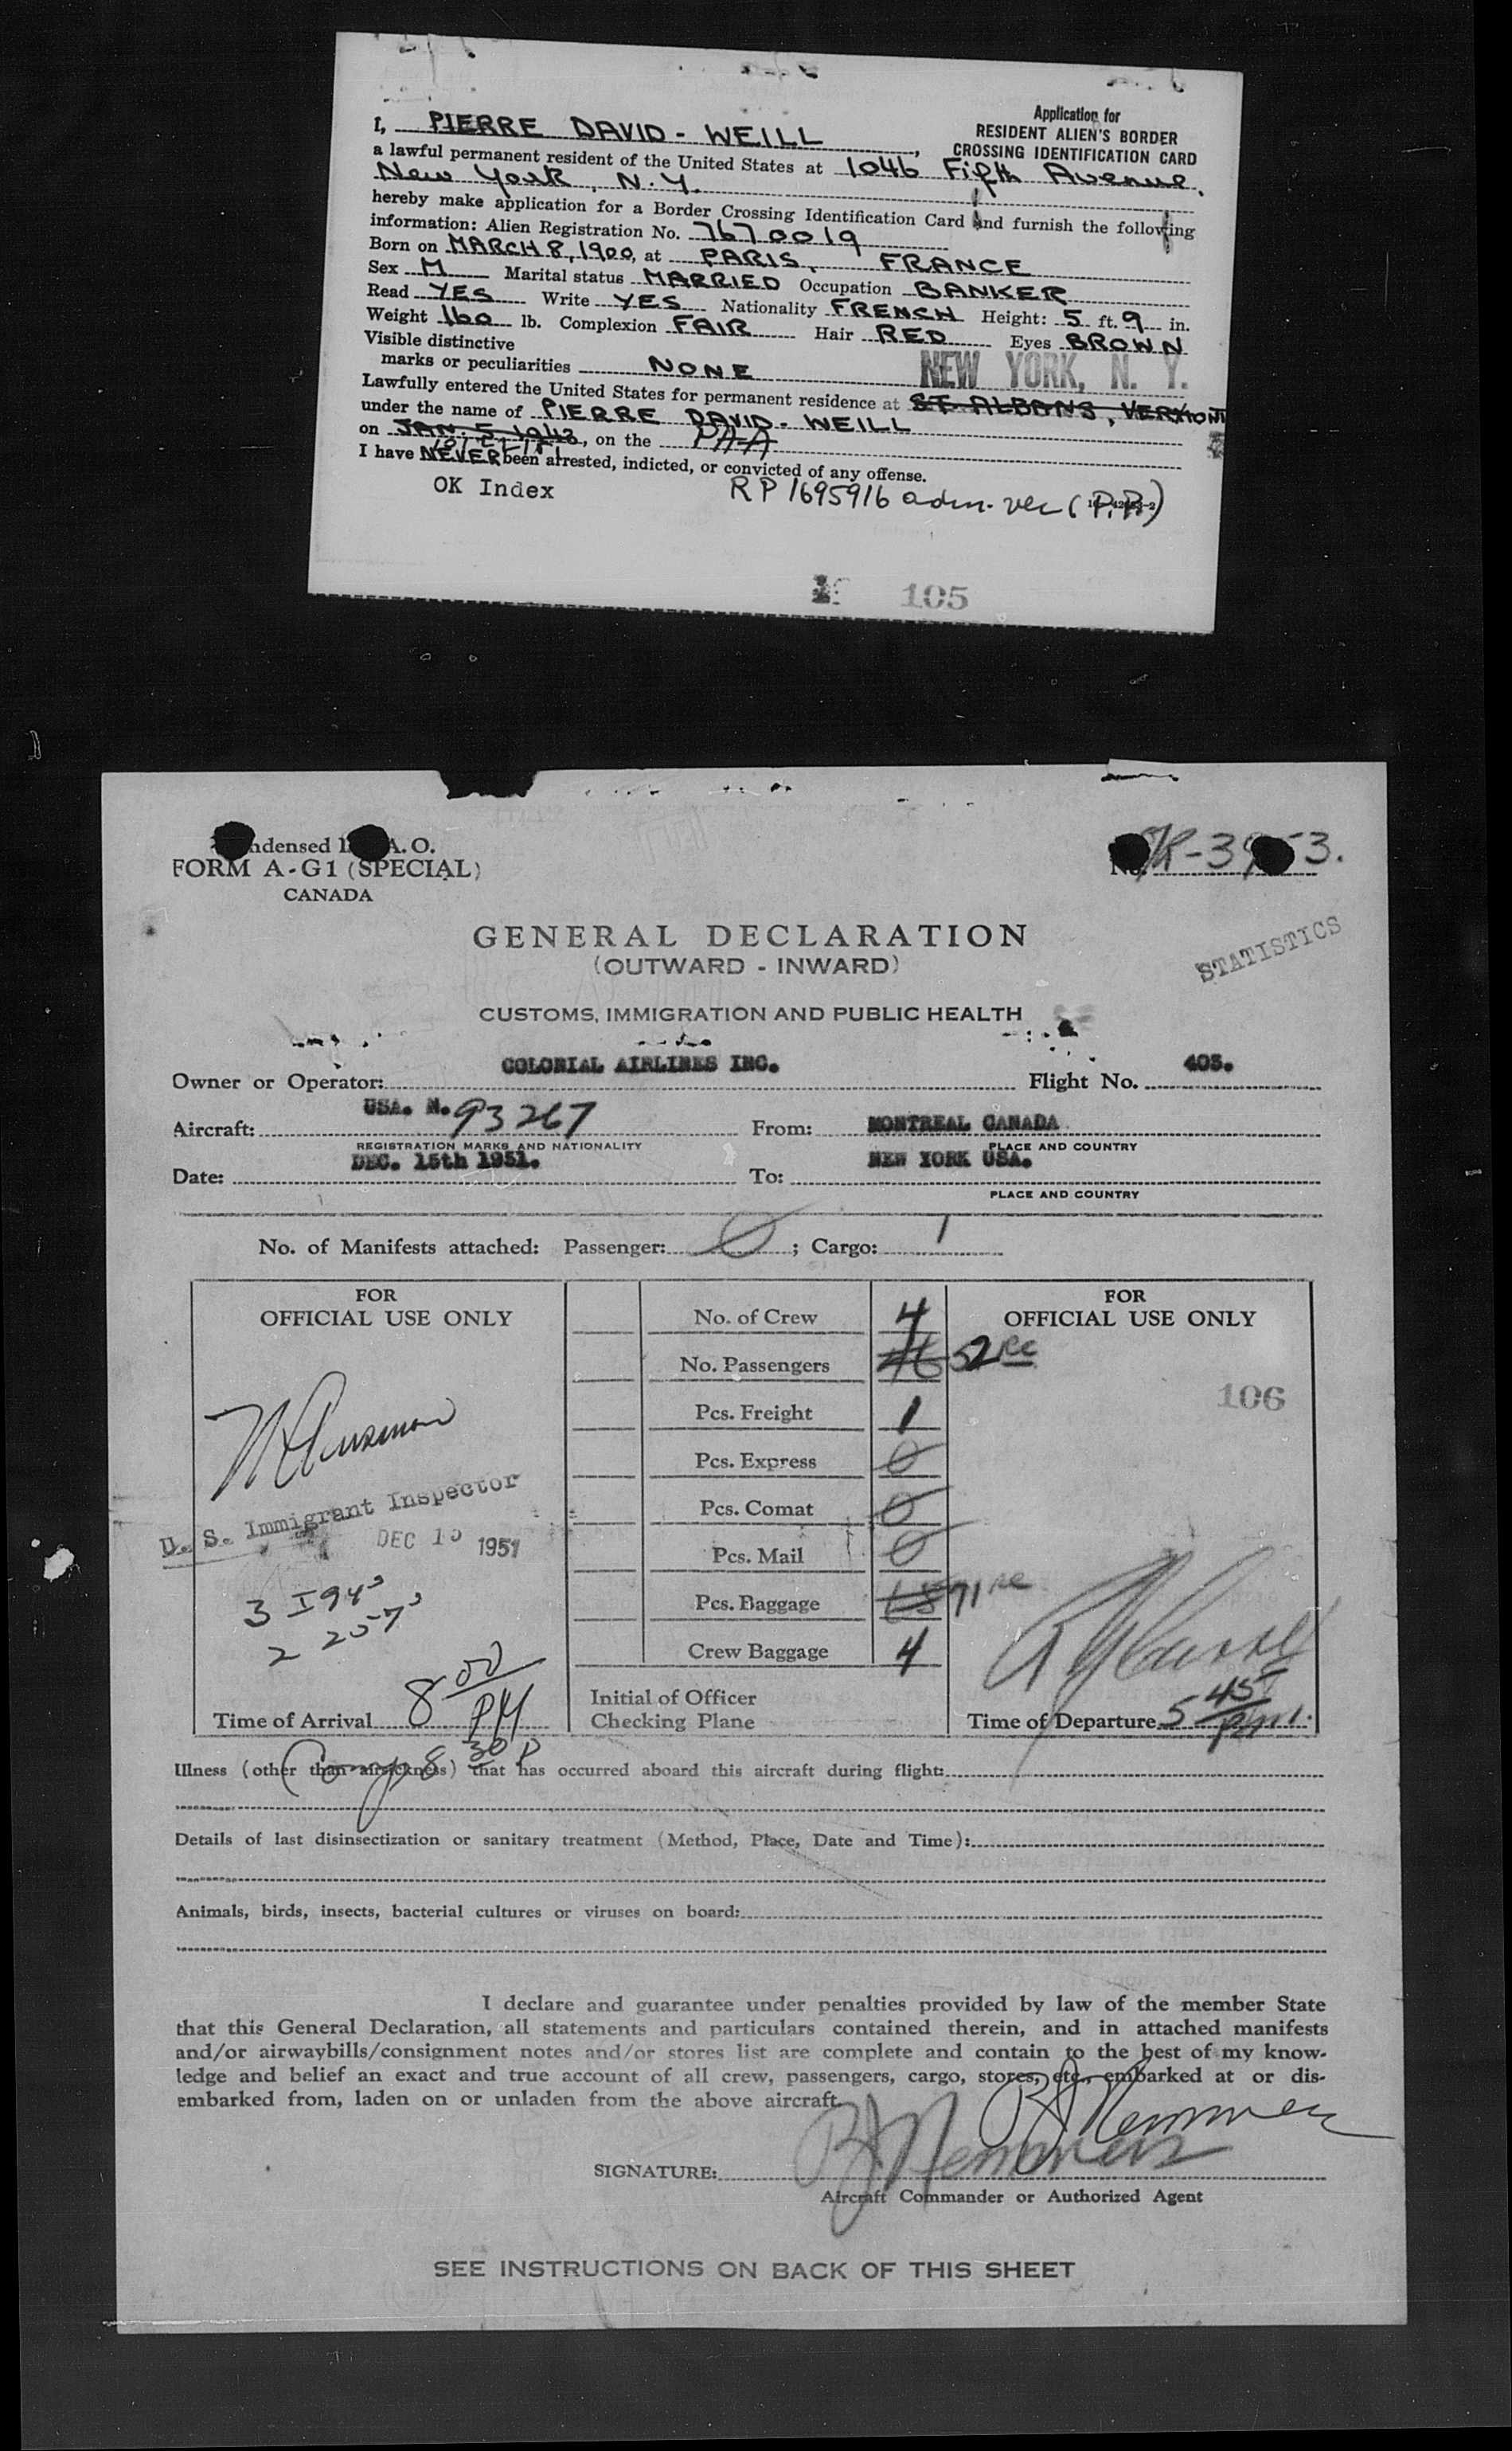 Application for
RESIDENT ALIEN'S BORDER
CROSSING IDENTIFICATION CARD
I, PIERRE DAVID-WEILL,
a lawful permanent resident of the United States at 1046 Fifth Avenue,
New York, N.Y.
hereby make application for a Border Crossing Identification Card and furnish the following
information: Alien Registration No. 7670019
Born on MARCH 8, 1900, at PARIS, FRANCE
Sex M Marital status MARRIED Occupation BANKER
Read YES Write YES Nationality FRENCH Height: 5 ft. 9 in.
Weight 160 lb. Complexion FAIR Hair RED Eyes BROWN
Visible distinctive
marks or peculiarities NONE
NEW YORK, N. Y.
Lawfully entered the United States for permanent residence at ST. ALBANS, VERMONT
under the name of PIERRE DAVID-WEILL
on JAN. 5, 1943, on the PAA
I have NEVER been arrested, indicted, or convicted of any offense.
OK Index RP 1695916 adm. ver (P.R.)
105
A.O.
FORM A-G1 (SPECIAL)
CANADA
STATISTICS
GENERAL DECLARATION
(OUTWARD - INWARD)
CUSTOMS, IMMIGRATION AND PUBLIC HEALTH
Owner or Operator: COLONIAL AIRLINES INC. Flight No. 405.
Aircraft: USA. N. 93267 From: MONTREAL CANADA
REGISTRATION MARKS AND NATIONALITY PLACE AND COUNTRY
Date: DEC. 15th 1951. To: NEW YORK USA.
PLACE AND COUNTRY
No. of Manifests attached: Passenger: 0; Cargo: 1
FOR
OFFICIAL USE ONLY
U. S. Immigrant Inspector
DEC 1951
3 I94
2 257
Time of Arrival 8 00 PM
No. of Crew 4
No. Passengers 46 52
Pcs. Freight 1
Pcs. Express 0
Pcs. Comat 0
Pcs. Mail 0
Pcs. Baggage 71
Crew Baggage 4
Initial of Officer
Checking Plane
FOR
OFFICIAL USE ONLY
106
Time of Departure 5 45 P.M.
Comp 8 30 P
Illness (other than airsickness) that has occurred aboard this aircraft during flight:
Details of last disinsectization or sanitary treatment (Method, Place, Date and Time):
Animals, birds, insects, bacterial cultures or viruses on board:
I declare and guarantee under penalties provided by law of the member State
that this General Declaration, all statements and particulars contained therein, and in attached manifests
and/or airwaybills/consignment notes and/or stores list are complete and contain to the best of my know-
ledge and belief an exact and true account of all crew, passengers, cargo, stores, etc., embarked at or dis-
embarked from, laden on or unladen from the above aircraft.
SIGNATURE:
Aircraft Commander or Authorized Agent
SEE INSTRUCTIONS ON BACK OF THIS SHEET